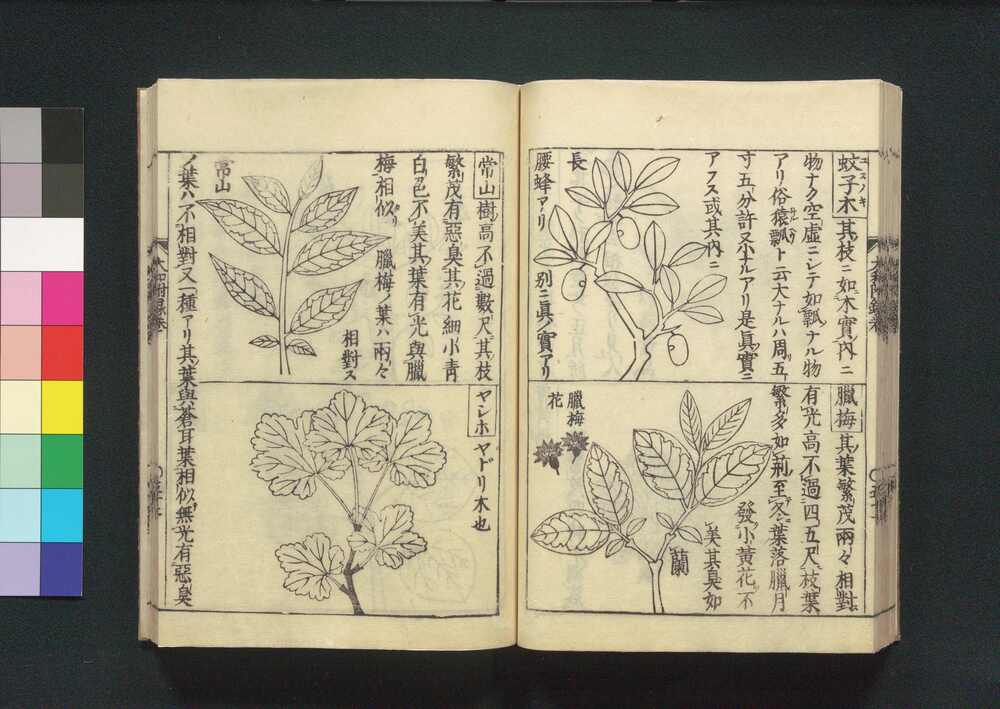 蚊子木其枝ニ如木實内ニ
物ナク空虚ニシテ如瓢ナル物
アリ俗猿瓢ト云大ナルハ周五
寸五分許又小ナルアリ是眞實ニ
アラス或其内ニ
長
腰蜂アリ 別ニ眞ノ實アリ
臘梅其葉繁茂兩々相對
有光高不過四五尺枝葉
繁多如荊至冬葉落臘月
發小黄花不
美其臭如
蘭
臘梅
花
常山樹高不過數尺其枝
繁茂有惡臭其花細小青
白色不美其葉有光與臘
梅相似 臘梅ノ葉ハ兩々
相對ス
常山
ノ葉ハ不相對又一種アリ其葉與蒼耳葉相似無光有惡臭
ヤシホ ヤドリ木也